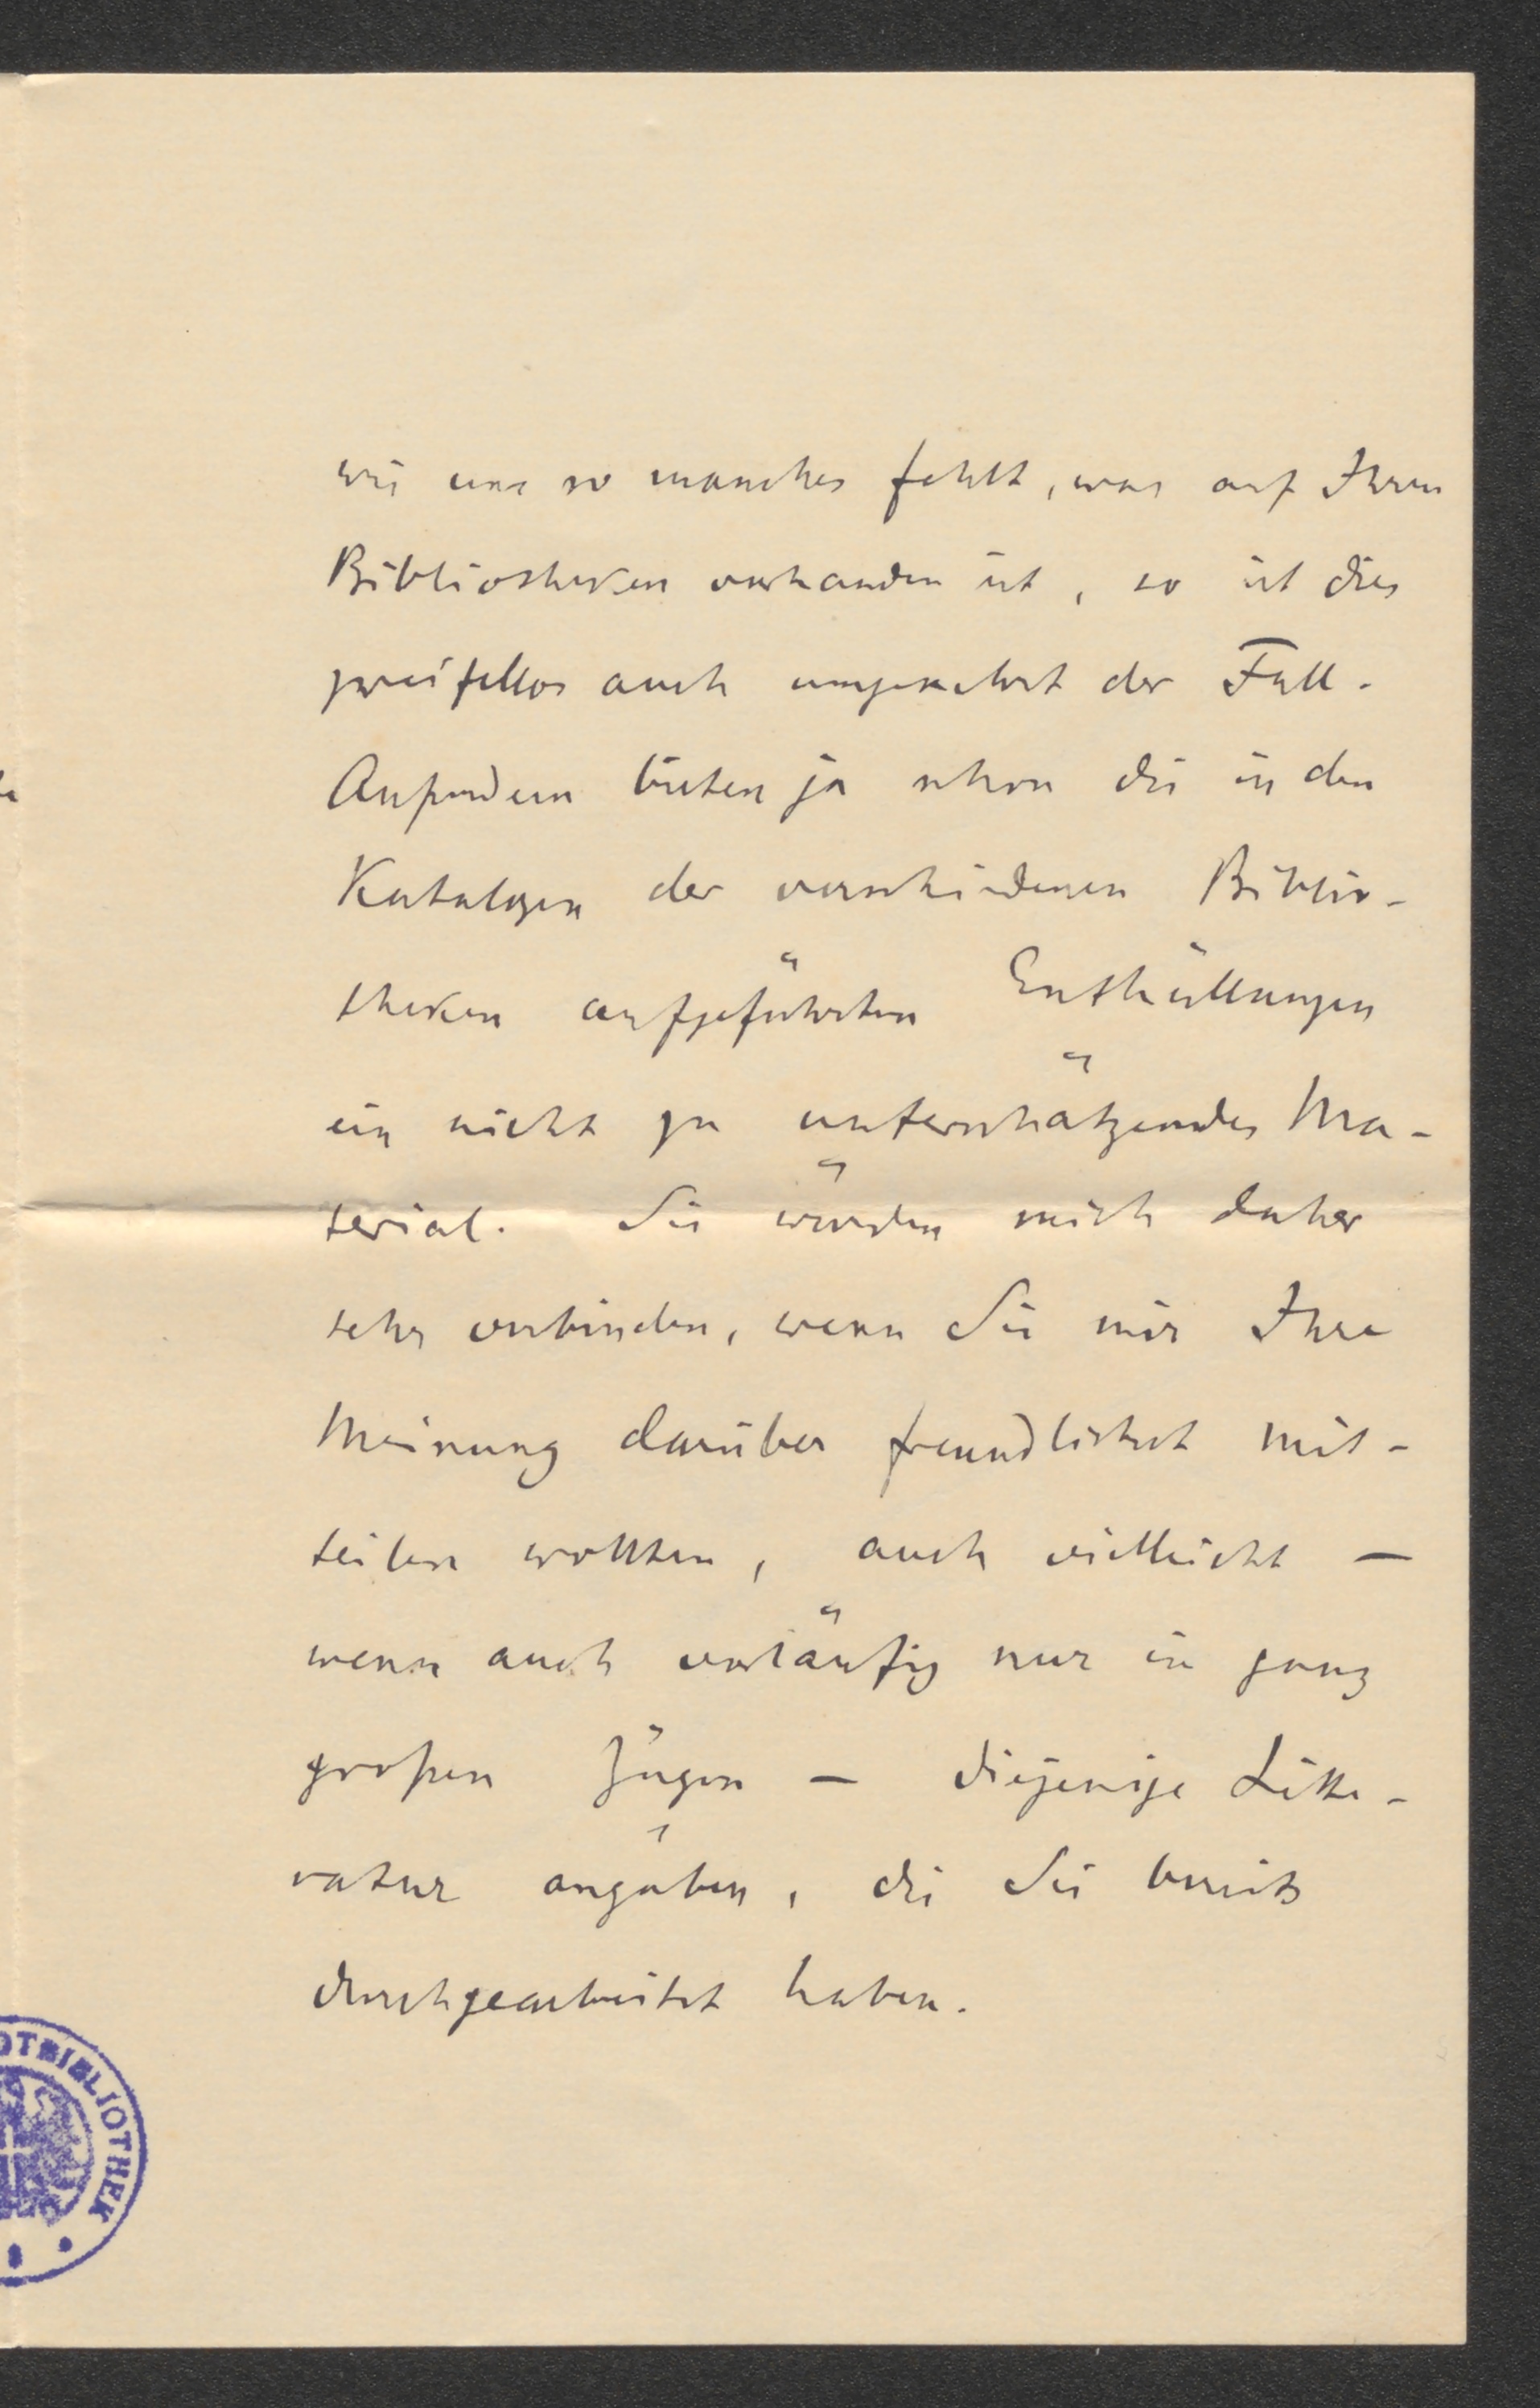 wie uns so manches fehlt, was auf Ihren
Bibliotheken vorhanden ist, so ist dies
zweifellos auch umgekehrt der Fall.
Außerdem bieten ja schon die in den
Katalogen der verschiedenen Biblio-
theken aufgeführten Enthüllungen
ein nicht zu unterschätzendes Ma-
terial. Sie würden mich daher
sehr verbinden, wenn Sie mir Ihre
Meinung darüber freundlichst mit-
teilen wollten, auch vielleicht —
wenn auch vorläufig nur in ganz
großen Zügen — diejenige Litte-
ratur angäben, die Sie bereits
durchgearbeitet haben.
OTBIBLIOTHEK